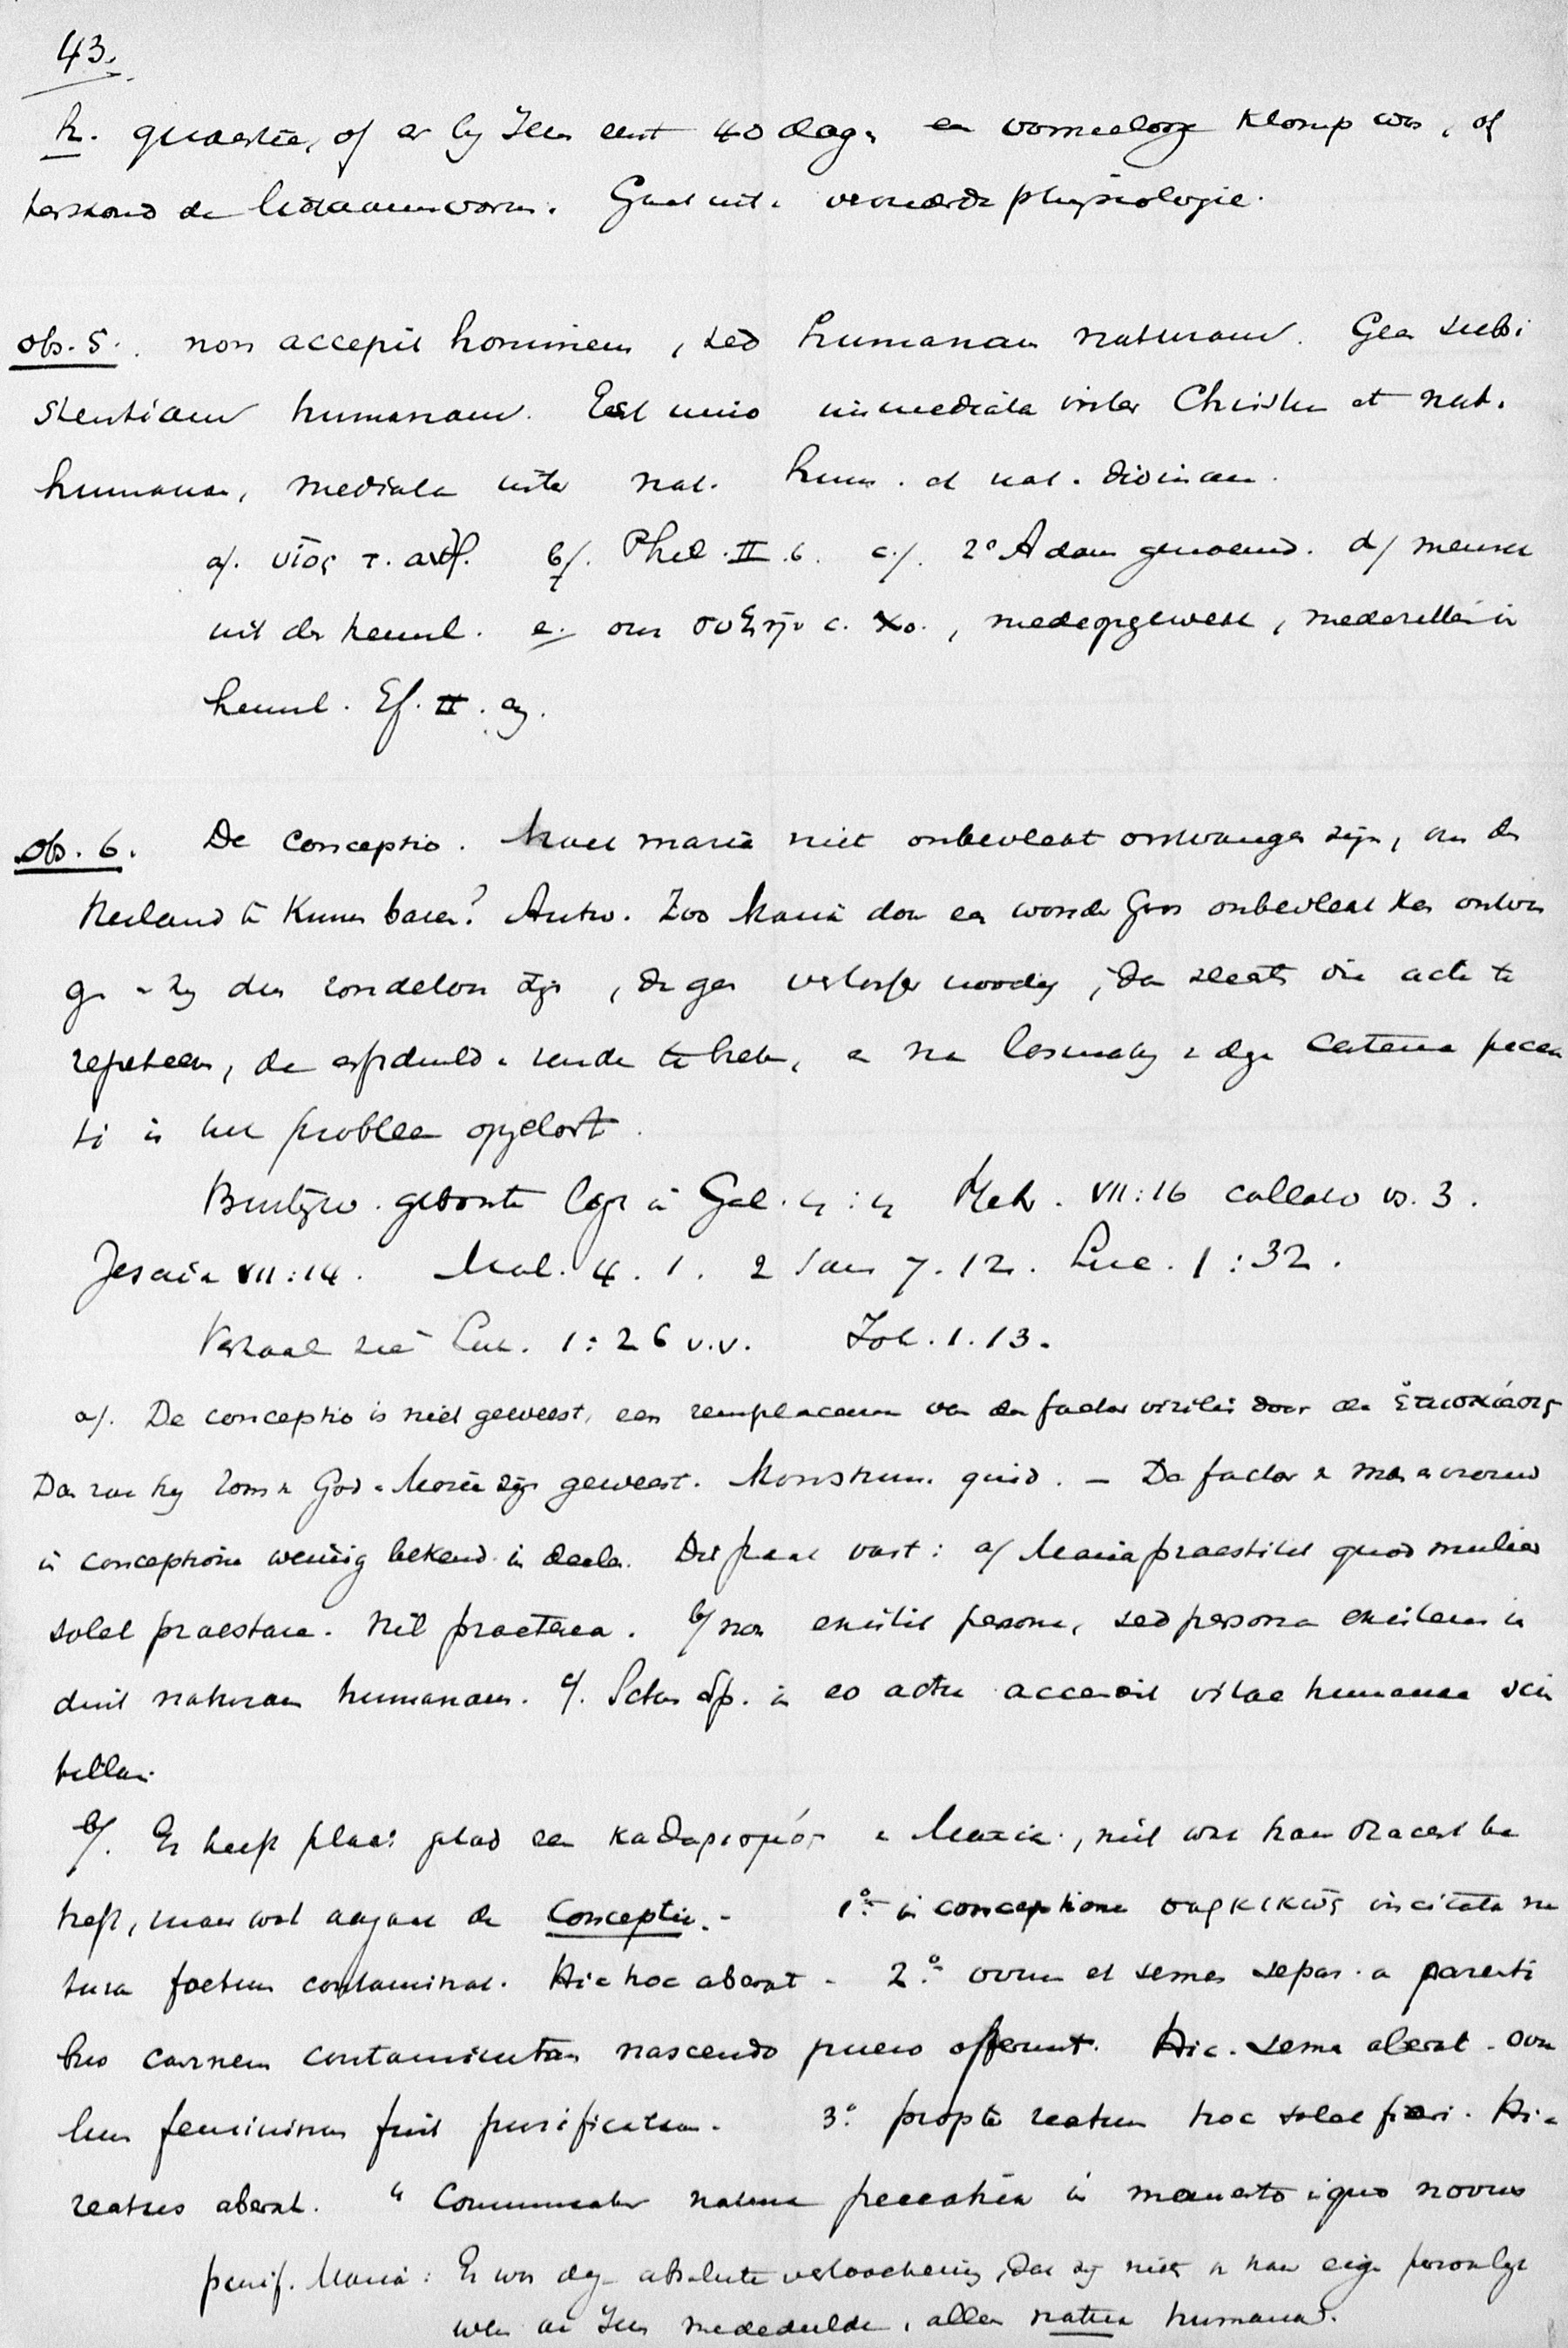 43.
h. quaestie, of er by Jezus eerst 40 dagen een vormelooze klomp was, of
terstond de lichaamsvorm. Gaat uit v. verouderde physiologie.
obs. 5. non accepit hominem, sed humanam naturam. Geen subsi
stentiam humanam. Est unio immediata inter Christum et nat.
humanam, mediata inter nat. hum. et nat. divinam.
a/. υἱος τ. ανθ. b/. Phil. II. 6. c./. 2e Adam genoemd. d/ mensch
uit den hemel. e/. ons συζῆν c. Χο., medeopgewekt, medezetten in
hemel. Ef. II.
obs. 6. De conceptio. Moet Maria niet onbevlekt ontvangen zijn, om den
Heiland te kunnen baren? Antw. Zoo Maria door een wonder Gods onbevlekt kon ontvan
gen zondeloos zijn, geen verlosser noodig, dan slechts die acte te
repeteeren, de erfschuld en zonde te heelen, en na losmaking v. deze catena pecca
ti is het probleem opgelost.
Buitengew. geboorte Gal. 4:4 Hebr. VII:16 collato vs. 3.
Jesaia VII:14. Mal. 4. 1. 2 Sam 7. 12. Luc. 1:32.
Verhaal zie Luc. 1:26 v.v. Joh. 1. 13.
a/. De conceptio is niet geweest, een remplaceeren van den factor virilis door de ἐπισκίασις
Dan zou hij zoon v. God en Maria zijn geweest. Monstrum quid. — De factor v. man en vrouw
in conceptione weinig bekend in deelen. Dit staat vast: a/ Maria praestitit quod mulier
solet praestare. Nil praeterea. b/ non exstitit persona, sed persona existens in
duit naturam humanam. c/. Sctus Sp. in eo actu accendit vitae humanae scin
tillam.
b/. Er heeft plaats gehad een καθαρισμός v. Maria, niet wat haar be
treft, maar wat aangaat de Conceptie. - 1o in conceptione σαρκικῶς incitata na
tura foetum contaminat. Hic hoc aberat - 2o ovum et semen separ. a parenti
bus carnem contaminatam nascendo puero offerunt. Hic semen aberat. ovu
lum femininum fuit purificatum. 3o propter reatum hoc solet fieri. Hic
reatus aberat. 4 Communicatur natura peccatrix in momento quo novus
purif. Maria: Er was absolute verloochening, dat zij niets v. haar eigen persoonlijk
wezen aan Jezus mededeelde, alleen natura humana.